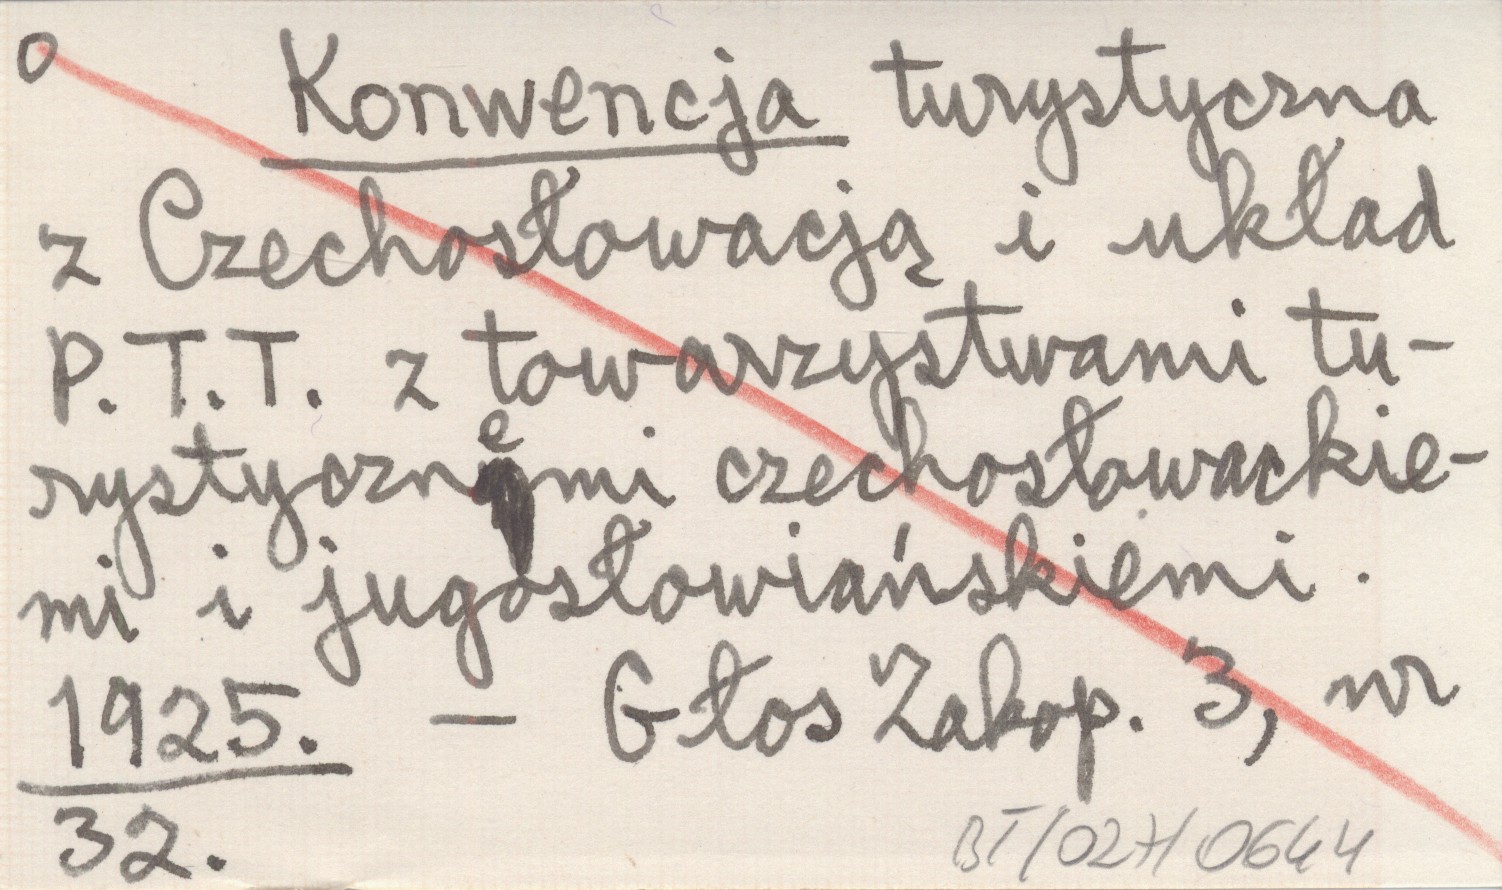 o Konwencja turystyczna
z Czechosłowacją i układ
P.T.T. z towarzystwami tu-
rystycznemi czechosłowackie-
mi i jugosłowiańskiemi.
1925. — Głos Zakop. 3, nr
32.
BT/027/0644